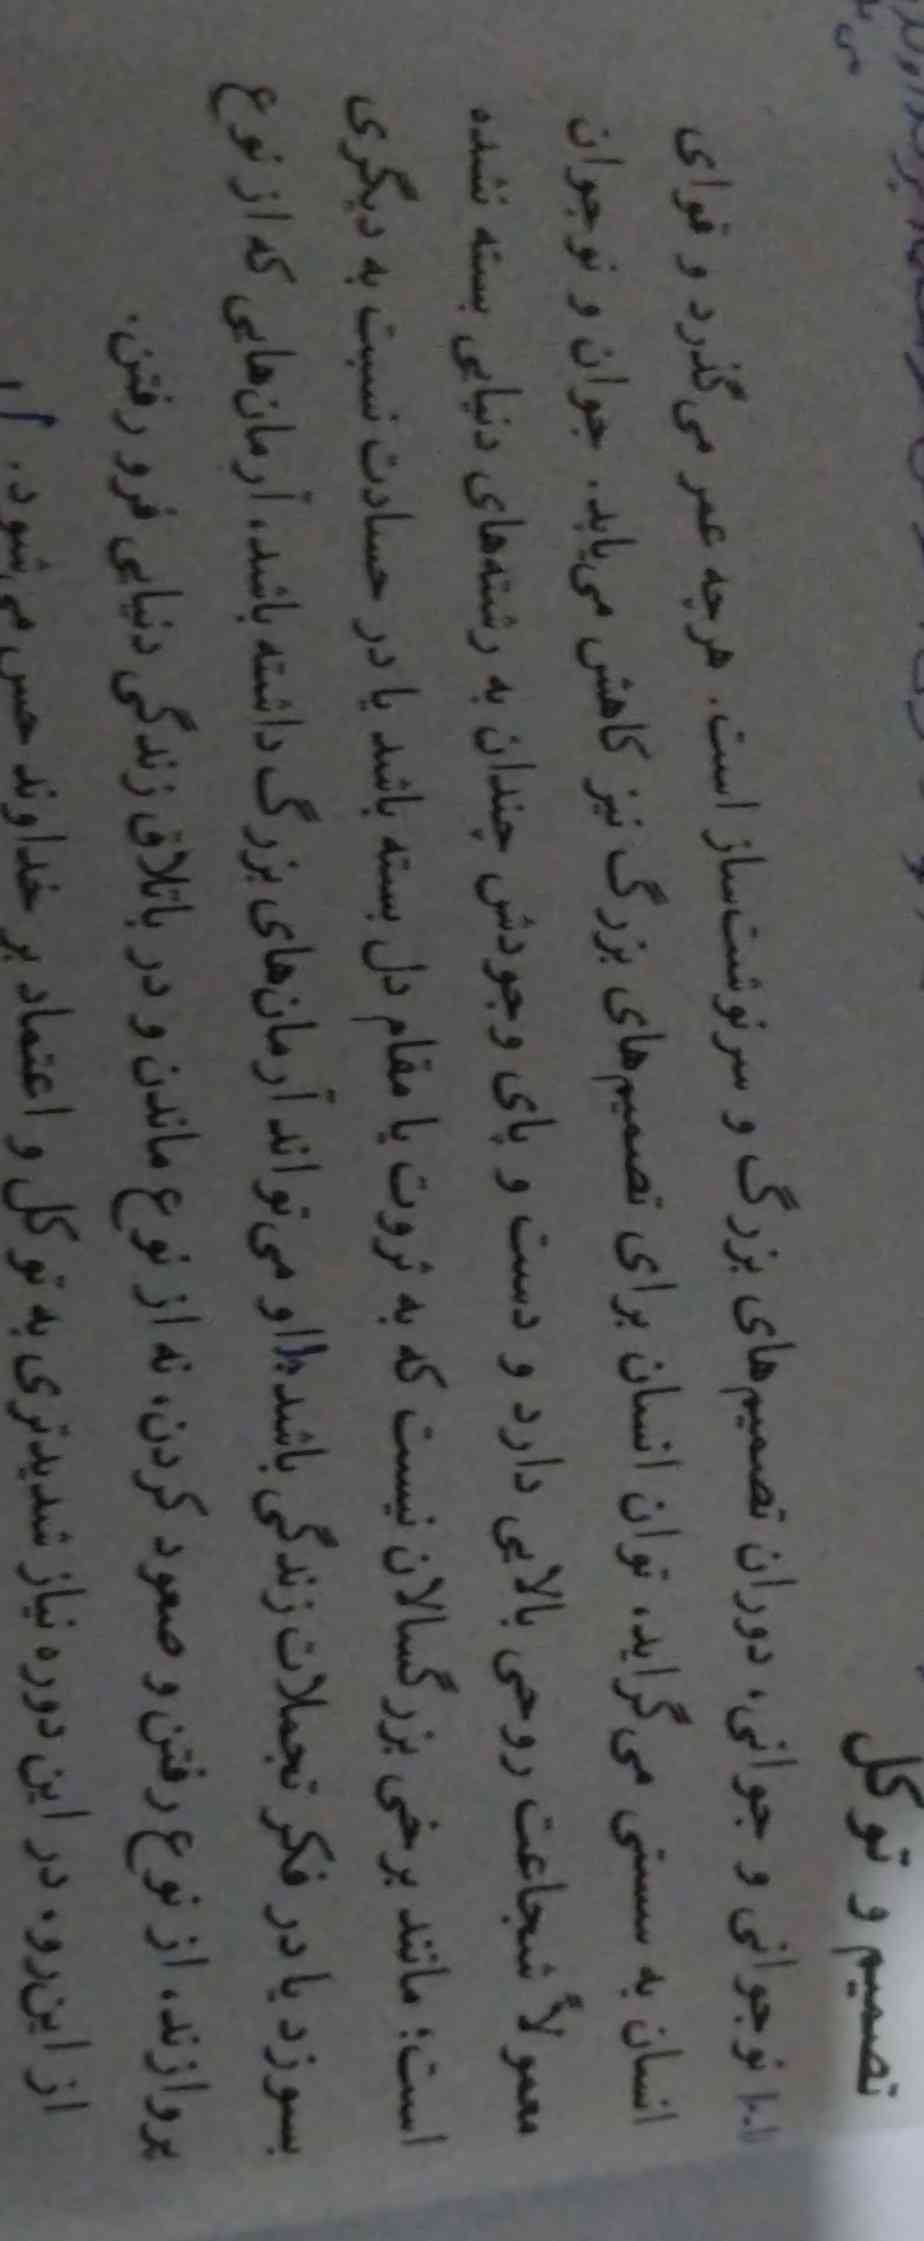 تصمیم و توکل
نوجوانی و جوانی، دوران تصمیم‌های بزرگ و سرنوشت‌ساز است. هرچه عمر می‌گذرد و قوای
انسان به سستی می‌گراید، توان انسان برای تصمیم‌های بزرگ نیز کاهش می‌یابد. جوان و نوجوان
معمولاً شجاعت روحی بالایی دارد و دست و پای وجودش چندان به رشته‌های دنیایی بسته نشده
است؛ مانند برخی بزرگسالان نیست که به ثروت یا مقام دل بسته باشد یا در حسادت نسبت به دیگری
بسوزد یا در فکر تجملات زندگی باشد. او می‌تواند آرمان‌های بزرگ داشته باشد، آرمان‌هایی که از نوع
پروازند، از نوع رفتن و صعود کردن، نه از نوع ماندن و در باتلاق زندگی دنیایی فرو رفتن.
از این‌رو، در این دوره نیاز شدیدتری به توکل و اعتماد بر خداوند حس می‌شود.